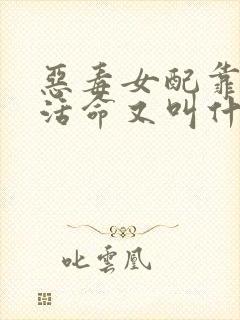 惡毒女配靠
活命又叫什
叱雲凰